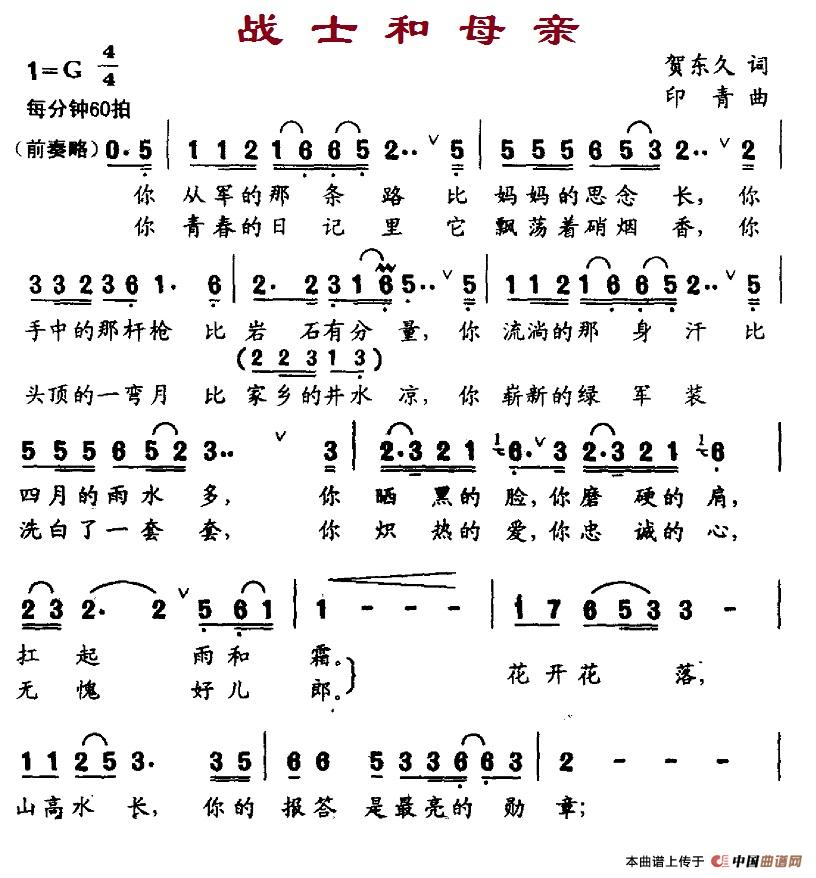 战士和母亲
1=G 4/4
贺东久 词
每分钟60拍
印青 曲
(前奏略) 0· 5 | 1 1 2 1 6 6 5 2·· ∨ 5 | 5 5 5 6 5 3 2·· ∨ 2 |
你 从军的那 条 路 比 妈妈的思念 长, 你
你 青春的日 记 里 它 飘荡着硝烟 香, 你
3 3 2 3 6 1· 6 | 2· 2 3 1 6 5·· ∨ 5 | 1 1 2 1 6 6 5 2·· ∨ 5 |
手中的那杆枪 比 岩 石有分 量, 你 流淌的那 身 汗 比
(2 2 3 1 3)
头顶的一弯月 比 家乡的井水 凉, 你 崭新的绿 军 装
5 5 5 6 5 2 3·· ∨ 3 | 2·3 2 1 1/7 6· ∨ 3 2·3 2 1 1/7 6 |
四月的雨水 多, 你 晒 黑的 脸, 你 磨 硬的 肩,
洗白了一套 套, 你 炽 热的 爱, 你 忠 诚的 心,
2 3 2· 2 ∨ 5 6 1 | 1 - - - | 1 7 6 5 3 3 - |
扛 起 雨和 霜。
无 愧 好儿 郎。
花开花 落,
1 1 2 5 3· 3 5 | 6 6 5 3 3 6 6 3 | 2 - - - |
山高水 长, 你的 报答 是最亮的 勋 章;
本曲谱上传于 中国曲谱网